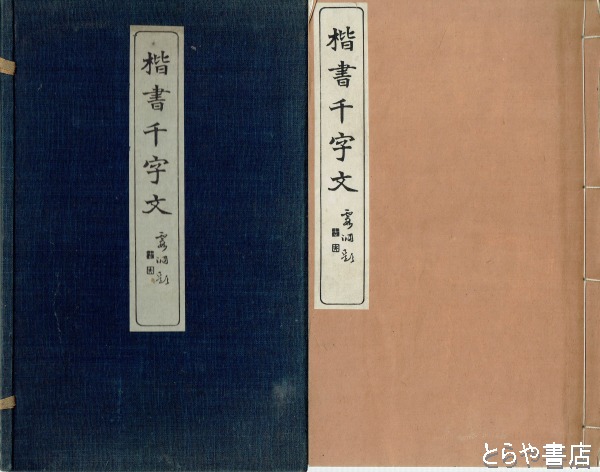 楷書千字文
楷書千字文
とらや書店